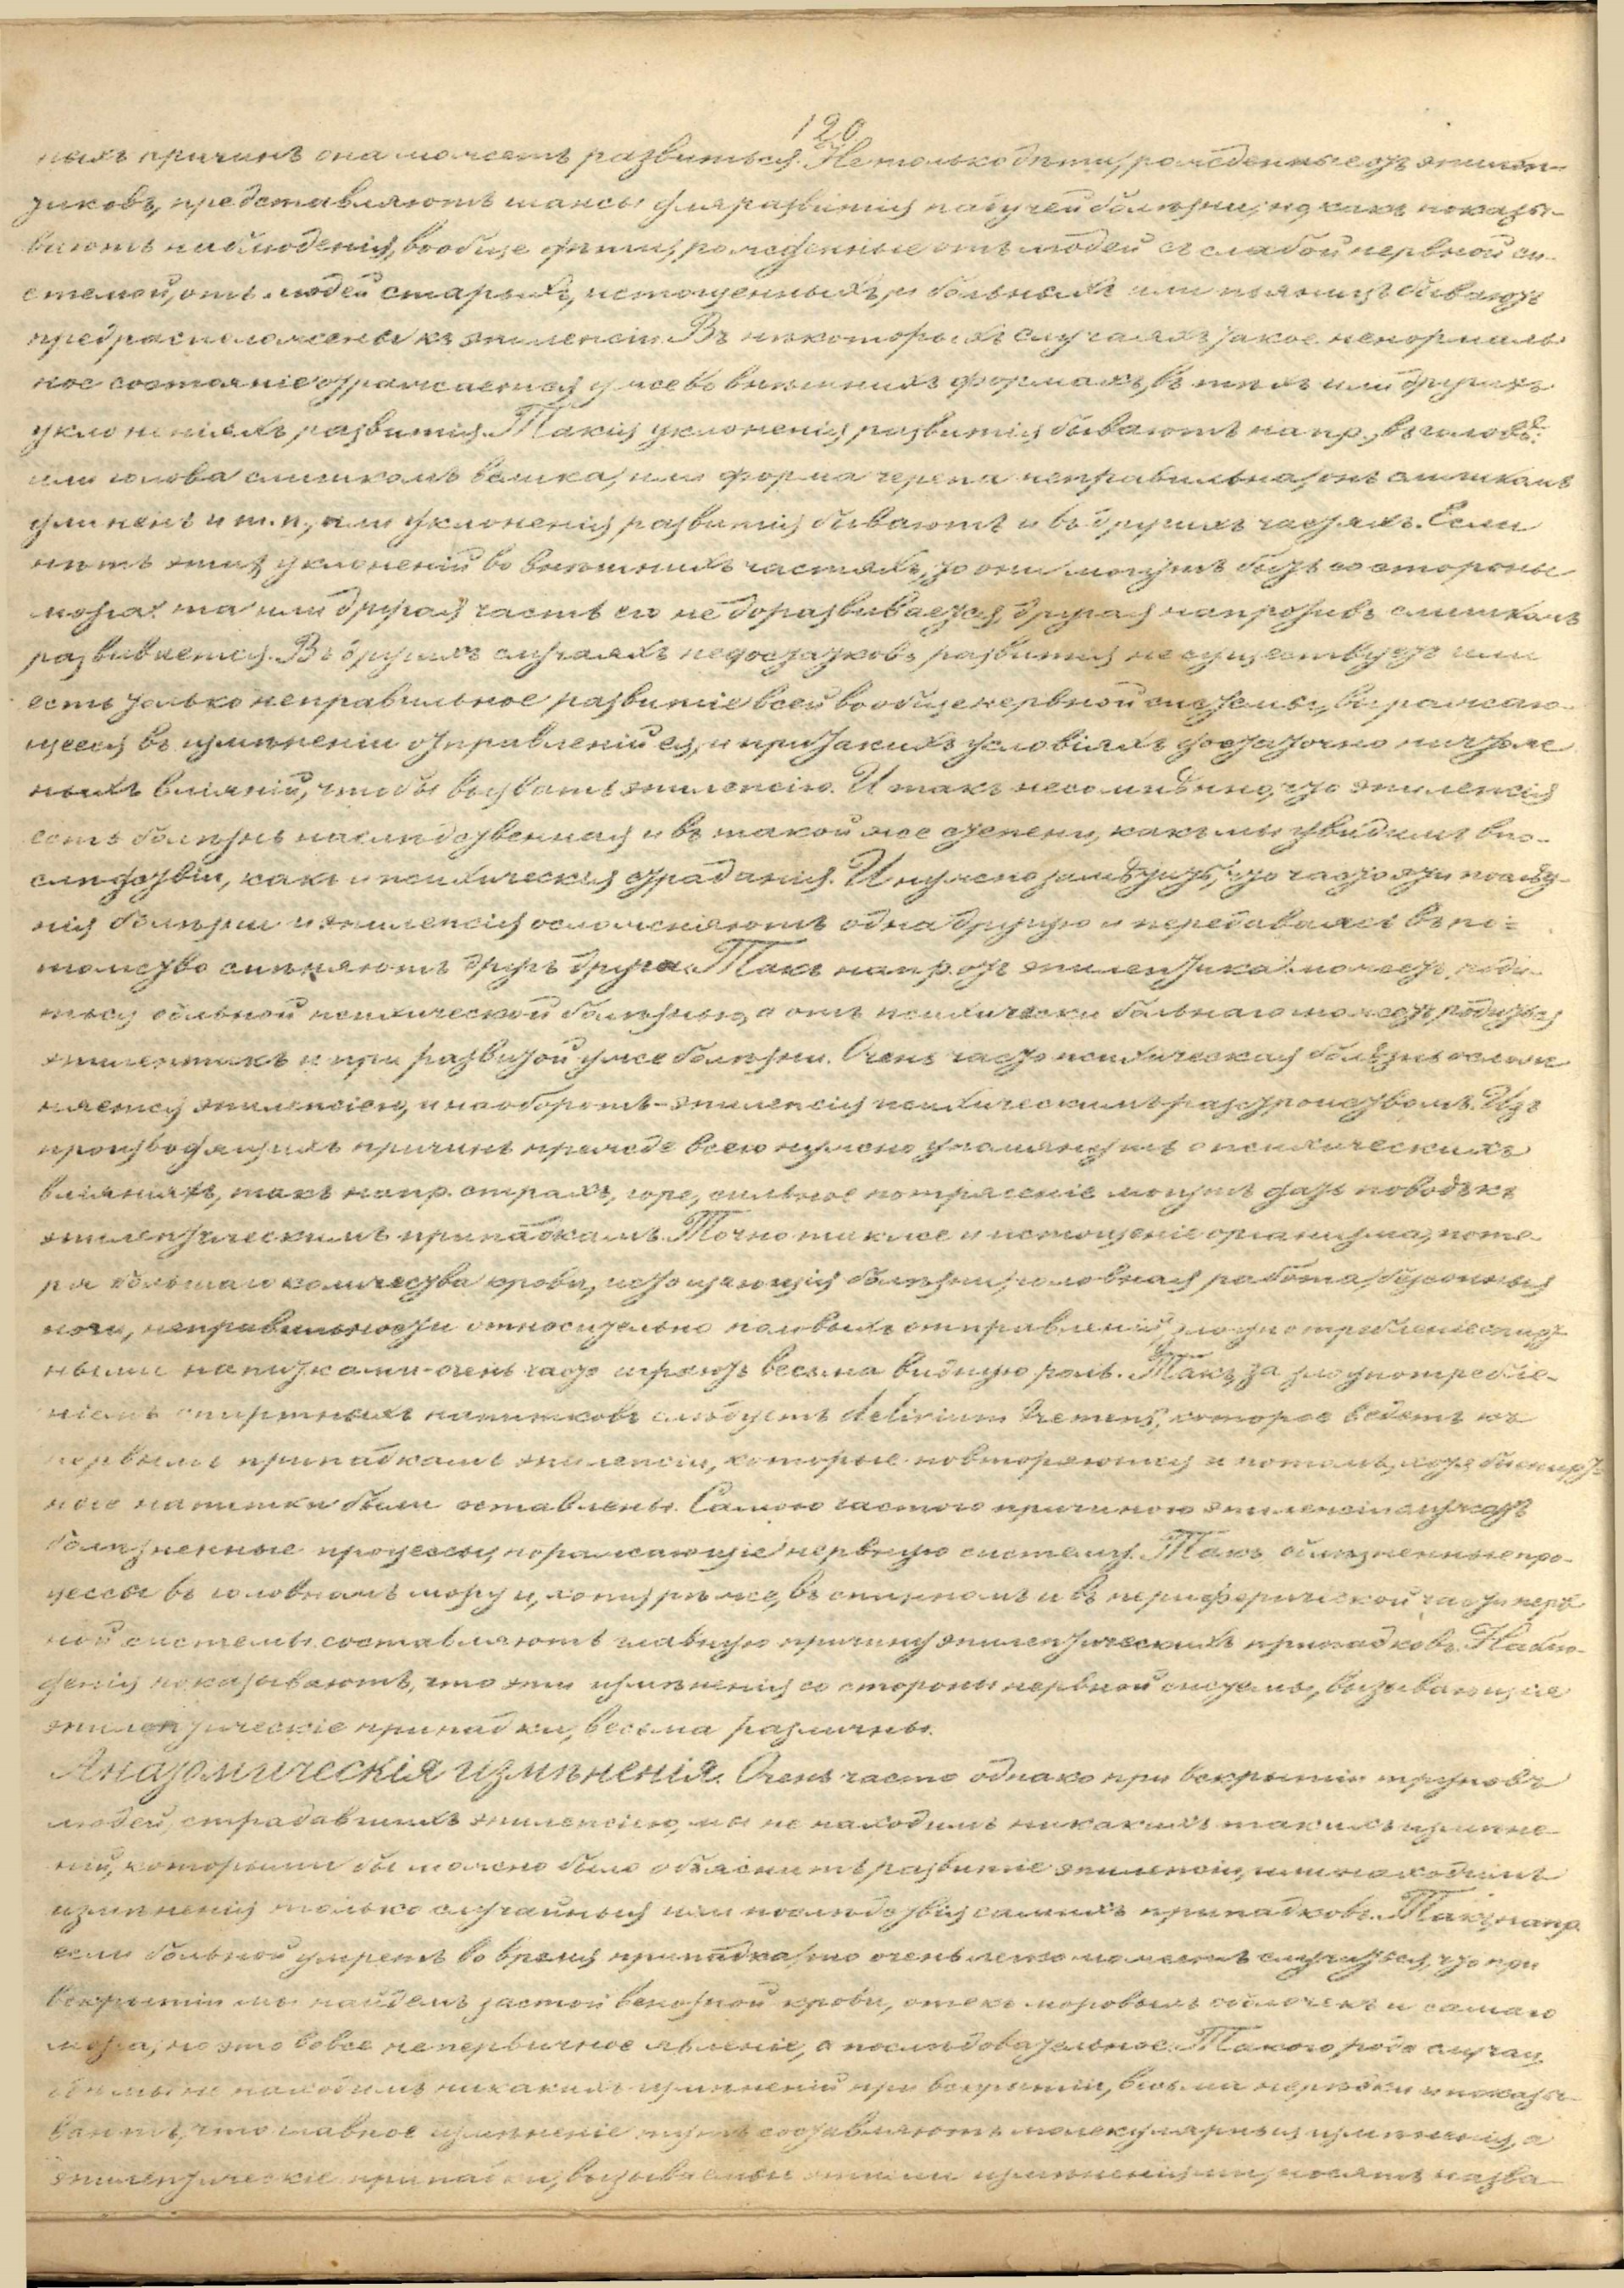 120
ныхъ причинъ она можетъ развиться. Не только дѣти, рожденные отъ эпилеп-
тиковъ, представляютъ шансы для развитія падучей болѣзни, но какъ показы-
ваютъ наблюденія, вообще дѣти, рожденные отъ людей съ слабой нервной си-
стемой, отъ людей старыхъ, истощенныхъ, и больныхъ или пьяницъ бываютъ
предрасположены къ эпилепсіи. Въ нѣкоторыхъ случаяхъ такое ненормаль-
ное состояніе отражается уже во внѣшнихъ формахъ, въ тѣхъ или другихъ
уклоненіяхъ развитія. Такія уклоненія развитія бываютъ напр., въ головѣ:
или голова слишкомъ велика, или форма черепа неправильна, онъ слишкомъ
длиненъ и т. п., или уклоненія развитія бываютъ и въ другихъ частяхъ. Если
нѣтъ этихъ уклоненій во внѣшнихъ частяхъ, то они могутъ быть со стороны
мозга: та или другая часть его не доразвивается, другая напротивъ слишкомъ
развивается. Въ другихъ случаяхъ недостатковъ развитія не существуетъ или
есть только неправильное развитіе всей вообще нервной системы, выражаю-
щееся въ измѣненіи отправленій ея, и при такихъ условіяхъ достаточно ничтож-
ныхъ вліяній, чтобы вызвать эпилепсію. И такъ несомнѣнно, что эпилепсія
есть болѣзнь наслѣдственная и въ такой же степени, какъ мы увидимъ впо-
слѣдствіи, какъ и психическія страданія. И нужно замѣтить, что часто эти послѣд-
нія болѣзни и эпилепсія осложняютъ одна другую и передаваясь въ по-
томство смѣняютъ другъ друга. Такъ напр. отъ эпилептика можетъ роди-
ться больной психической болѣзнью, а отъ психически больнаго можетъ родиться
эпилептикъ и при развитой уже болѣзни. Очень часто психическая болѣзнь ослож-
няется эпилепсіею, и наоборотъ - эпилепсія психическимъ разстройствомъ. Изъ
производящихъ причинъ прежде всего нужно упомянуть о психическихъ
вліяніяхъ, такъ напр. страхъ, горе, сильное потрясеніе могутъ дать поводъ къ
эпилептическимъ припадкамъ. Точно также и истощеніе организма, поте-
ря большаго количества крови, истощающія болѣзни, головная работа, безсонныя
ночи, неправильности относительно половыхъ отправленій, злоупотребленіе спирт-
ными напитками - очень часто играютъ весьма видную роль. Такъ, за злоупотребле-
ніемъ спиртныхъ напитковъ слѣдуетъ delirium tremens, которое ведетъ къ
первымъ припадкамъ эпилепсіи, которые повторяются и потомъ, хотя бы спирт-
ные напитки были оставлены. Самою частою причиною эпилепсіи служатъ
болѣзненные процессы, поражающіе нервную систему. Такъ, болѣзненные про-
цессы въ головномъ мозгу и, хотя рѣже, въ спинномъ и въ периферической части нерв-
ной системы составляютъ главную причину эпилептическихъ припадковъ. Наблю-
денія показываютъ, что эти измѣненія со стороны нервной системы, вызывающія
эпилептическіе припадки, весьма различны.
Анатомическія измѣненія. Очень часто однако при вскрытіи труповъ
людей, страдавшихъ эпилепсіею, мы не находимъ никакихъ такихъ измѣне-
ній, которыми бы можно было объяснить развитіе эпилепсіи, или находимъ
измѣненія только случайныя или послѣдствія самихъ припадковъ. Такъ, напр.
если больной умретъ во время припадка, то очень легко можетъ случиться, что при
вскрытіи мы найдемъ застой венозной крови, отекъ мозговыхъ оболочекъ и самаго
мозга, но это вовсе не первичное явленіе, а послѣдовательное. Такого рода случаи,
гдѣ мы не находимъ никакихъ измѣненій при вскрытіи, весьма нерѣдки и показы-
ваютъ, что главное измѣненіе тутъ составляютъ молекулярныя измѣненія, а
эпилептическіе припадки, вызываемые этими измѣненіями, носятъ назва-